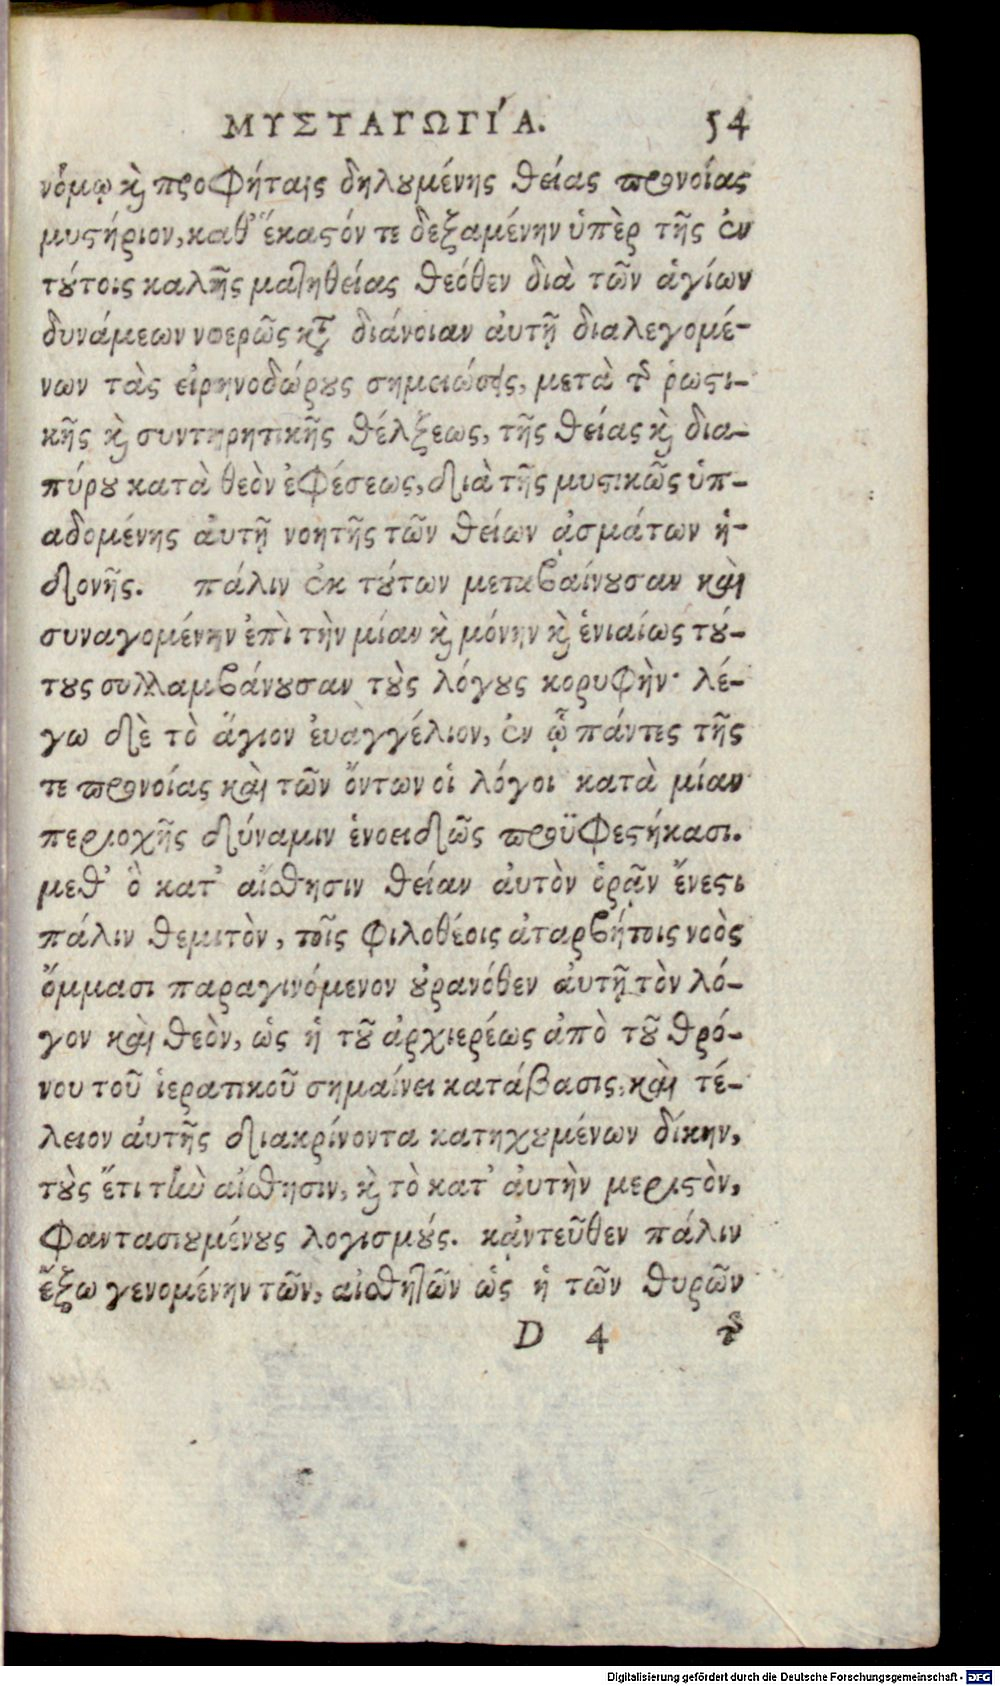 ΜΥΣΤΑΓΩΓΙ´Α. 54
νόμῳ καὶ προφήταις δηλουμένης θείας προνοίας
μυστήριον, καθ' ἕκαστόν τε δεξαμένην ὑπὲρ τῆς ἐν
τούτοις καλῆς μαθηθείας θεόθεν διὰ τῶν ἁγίων
δυνάμεων νοερῶς κατὰ διάνοιαν αὐτῇ διαλεγομέ-
νων τὰς εἰρηνοδώρους σημειώσεις, μετὰ τῆς ῥωστι-
κῆς καὶ συντηρητικῆς θέλξεως, τῆς θείας καὶ δια-
πύρου κατὰ θεὸν ἐφέσεως, διὰ τῆς μυστικῶς ὑπ-
αδομένης αὐτῇ νοητῆς τῶν θείων ᾀσμάτων ἡ-
δονῆς. πάλιν ἐκ τούτων μεταβαίνουσαν καὶ
συναγομένην ἐπὶ τὴν μίαν καὶ μόνην καὶ ἑνιαίως τού-
τους συλλαμβάνουσαν τοὺς λόγους κορυφὴν· λέ-
γω δὲ τὸ ἅγιον ἐυαγγέλιον, ἐν ᾧ πάντες τῆς
τε προνοίας καὶ τῶν ὄντων οἱ λόγοι κατὰ μίαν
περιοχῆς δύναμιν ἑνοειδῶς προϋφεστήκασι.
μεθ' ὃ κατ' αἴσθησιν θείαν αὐτὸν ὁρᾷν ἔνεστι
πάλιν θεμιτὸν, τοῖς φιλοθέοις ἀταρβήτοις νοὸς
ὄμμασι παραγινόμενον οὐρανόθεν αὐτῇ τὸν λό-
γον καὶ θεὸν, ὡς ἡ τοῦ ἀρχιερέως ἀπὸ τοῦ θρό-
νου τοῦ ἱερατικοῦ σημαίνει κατάβασις, καὶ τέ-
λειον αὐτῆς διακρίνοντα κατηχουμένων δίκην,
τοὺς ἔτι τὴν αἴσθησιν, καὶ τὸ κατ' αὐτὴν μεριστὸν,
φαντασιουμένους λογισμούς. κᾀντεῦθεν πάλιν
ἔξω γενομένην τῶν, αἰσθητῶν ὡς ἡ τῶν θυρῶν
D 4 τῆς